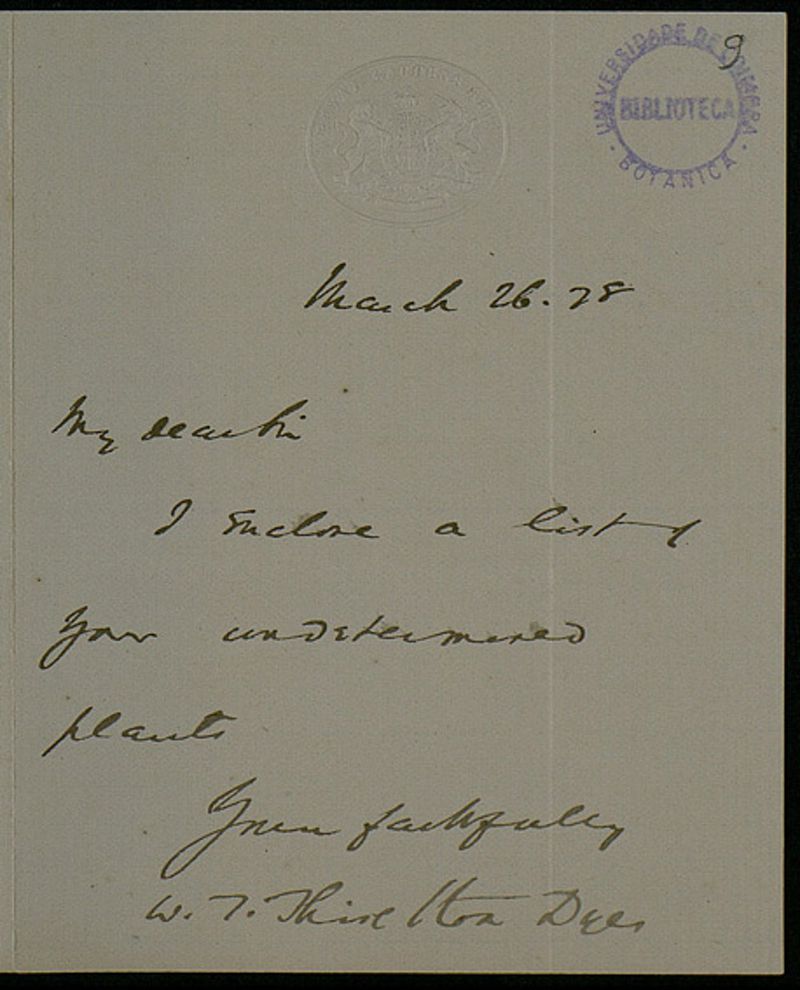 9
UNIVERSIDADE DE COIMBRA
BIBLIOTECA
BOTANICA
March 26. 78
My dear Sir
I enclose a list of
your undetermined
plants
Yours faithfully
W. T. Thiselton Dyer